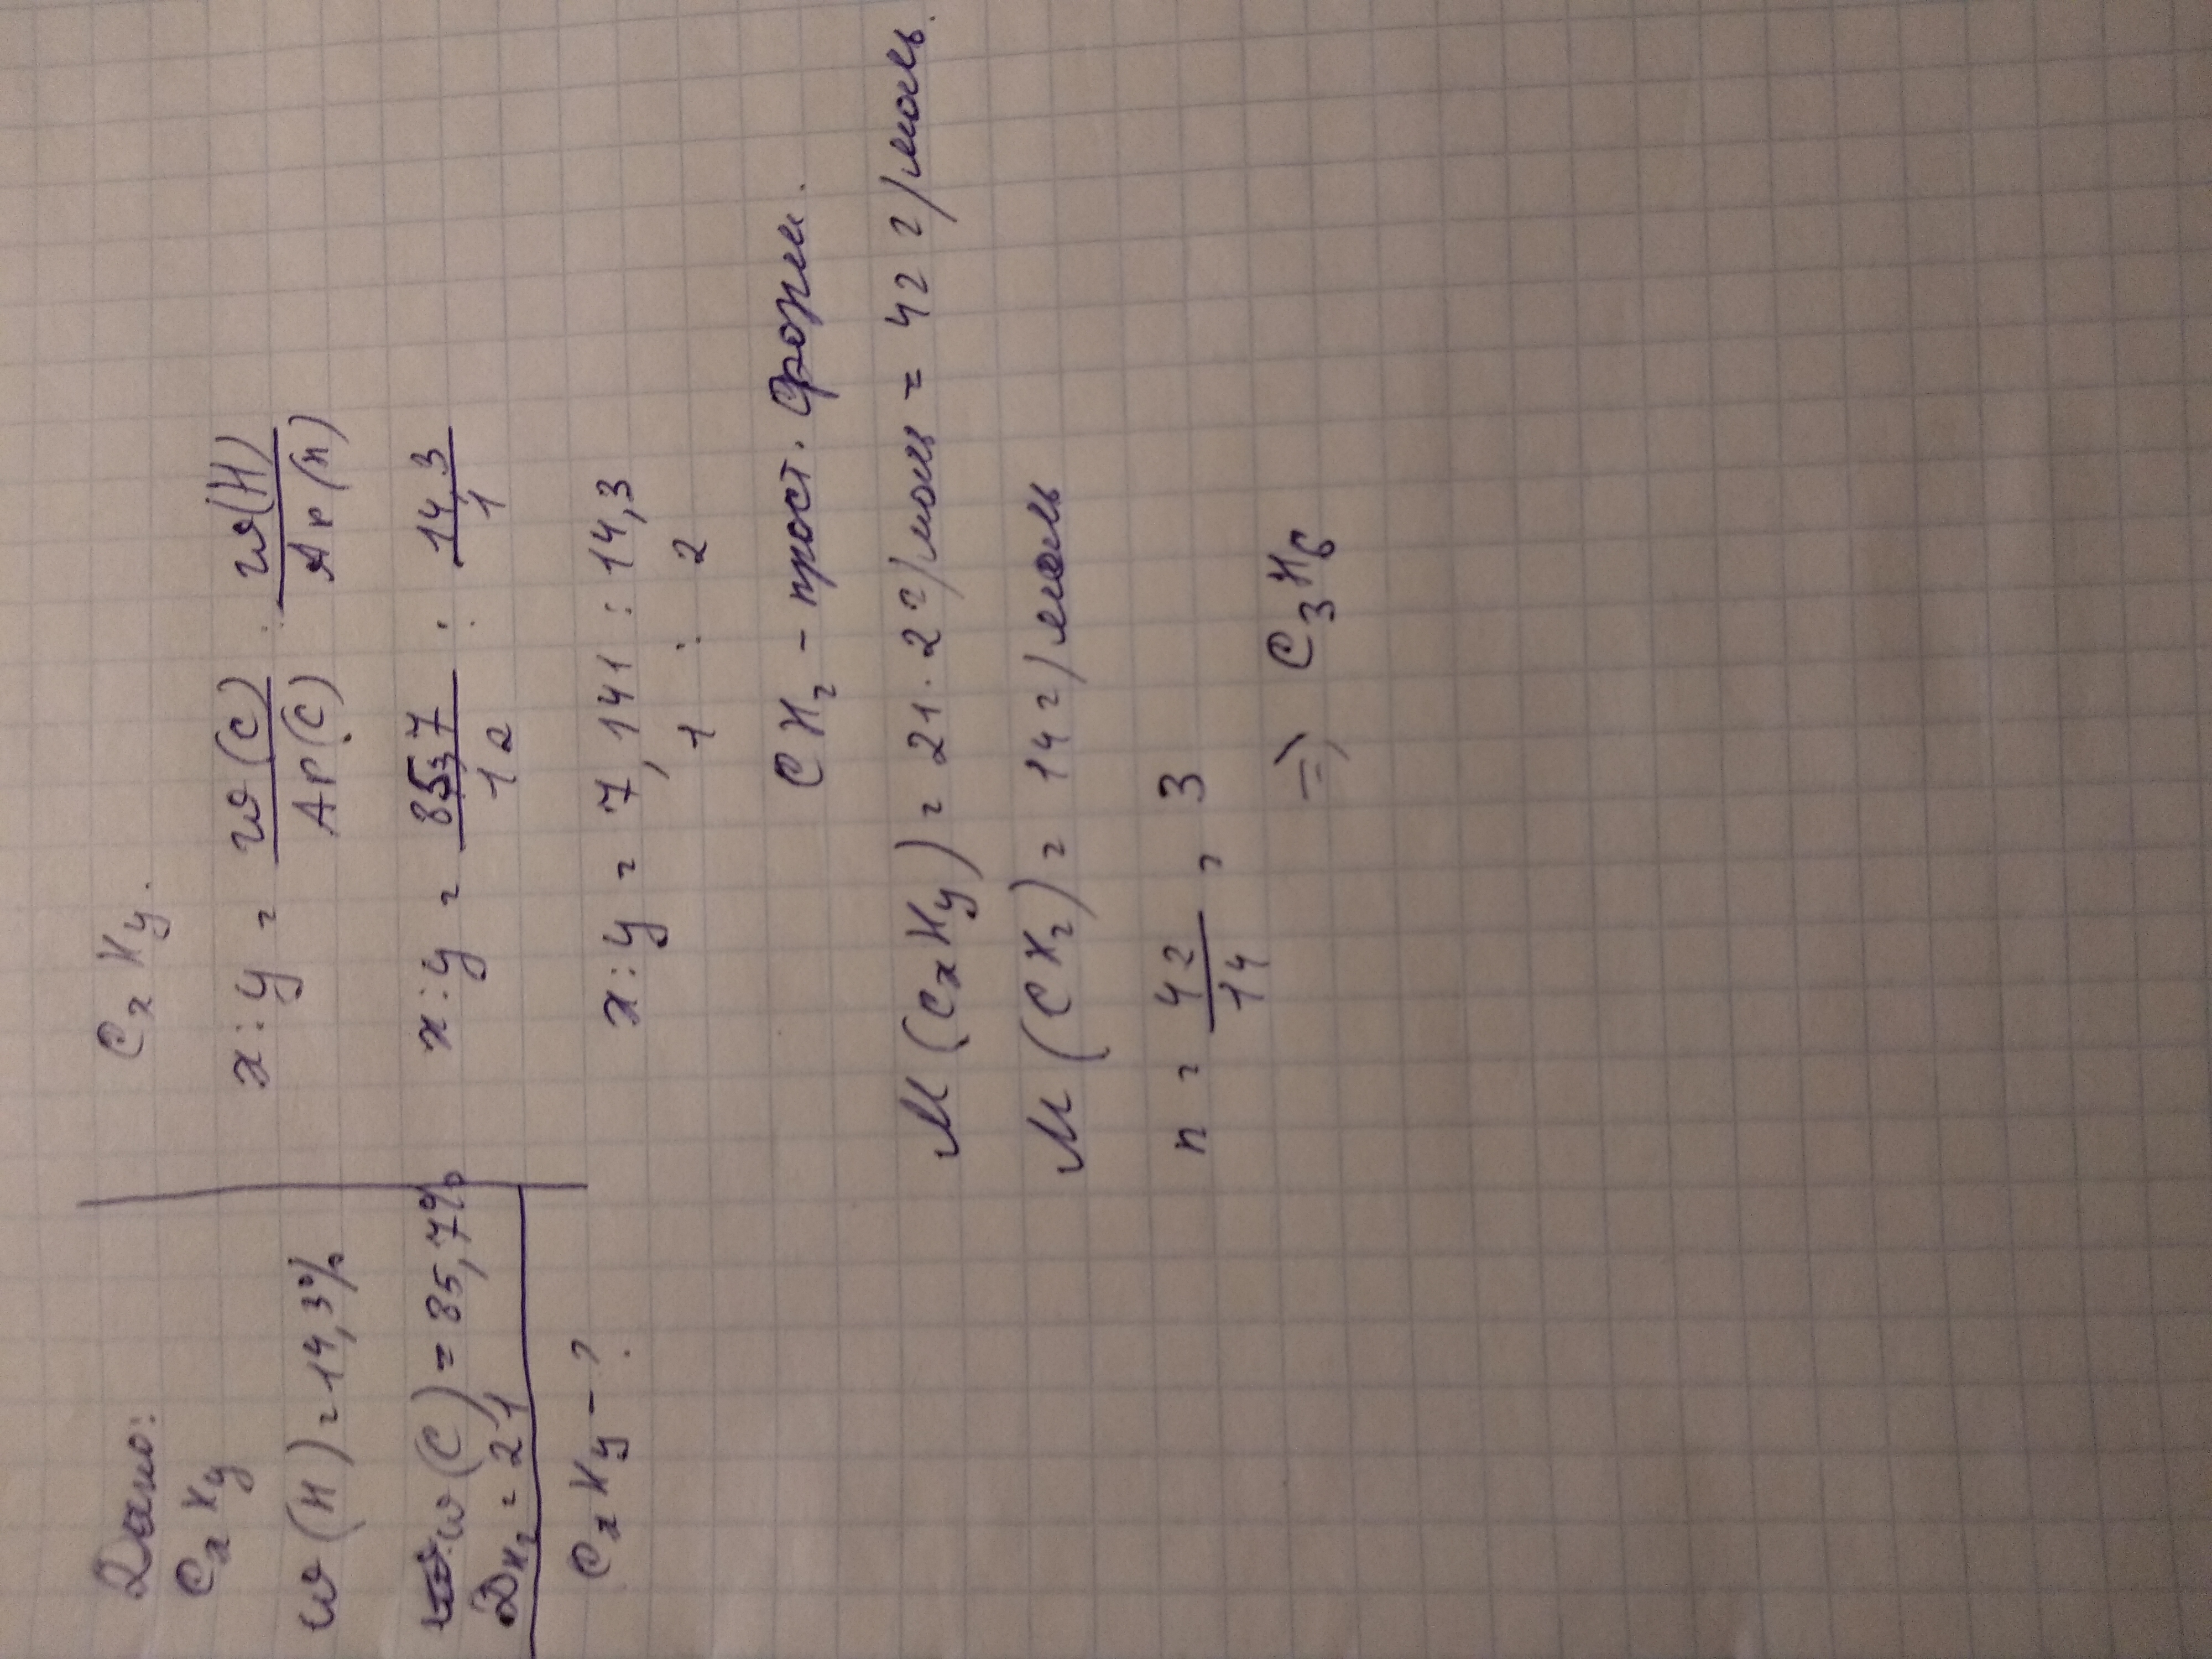 Дано:
CxHy
w(H) = 14,3%
w(C) = 85,7%
DH₂ = 21
CxHy - ?
CxHy.
x : y = w(C)/Ar(C) : w(H)/Ar(H)
x : y = 85,7/12 : 14,3/1
x : y = 7,141 : 14,3
1 : 2
CH₂ - прост. форм.
M(CxHy) = 21 · 2 г/моль = 42 г/моль.
M(CH₂) = 14 г/моль
n = 42/14 = 3
=> C₃H₆